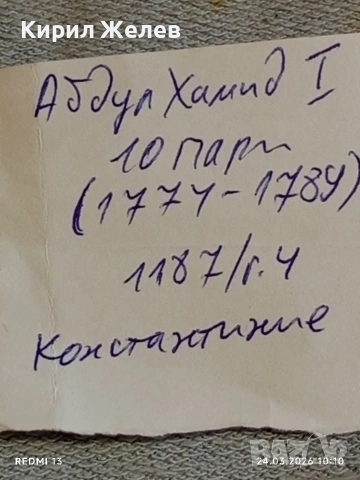 Кирил Желев
Абдул Хамид I
10 пари
(1774-1789)
1187/г.4
Константиние
REDMI 13
24.03.2026 10:10